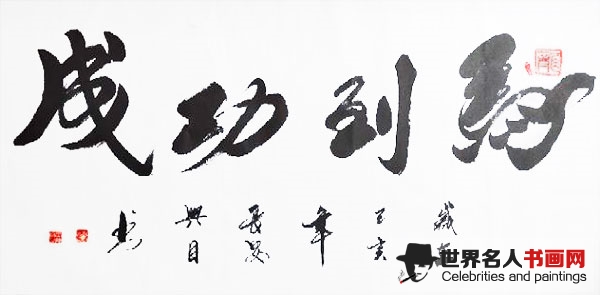 馬到功成
歲 己亥 年 书
世界名人书画网
Celebrities and paintings